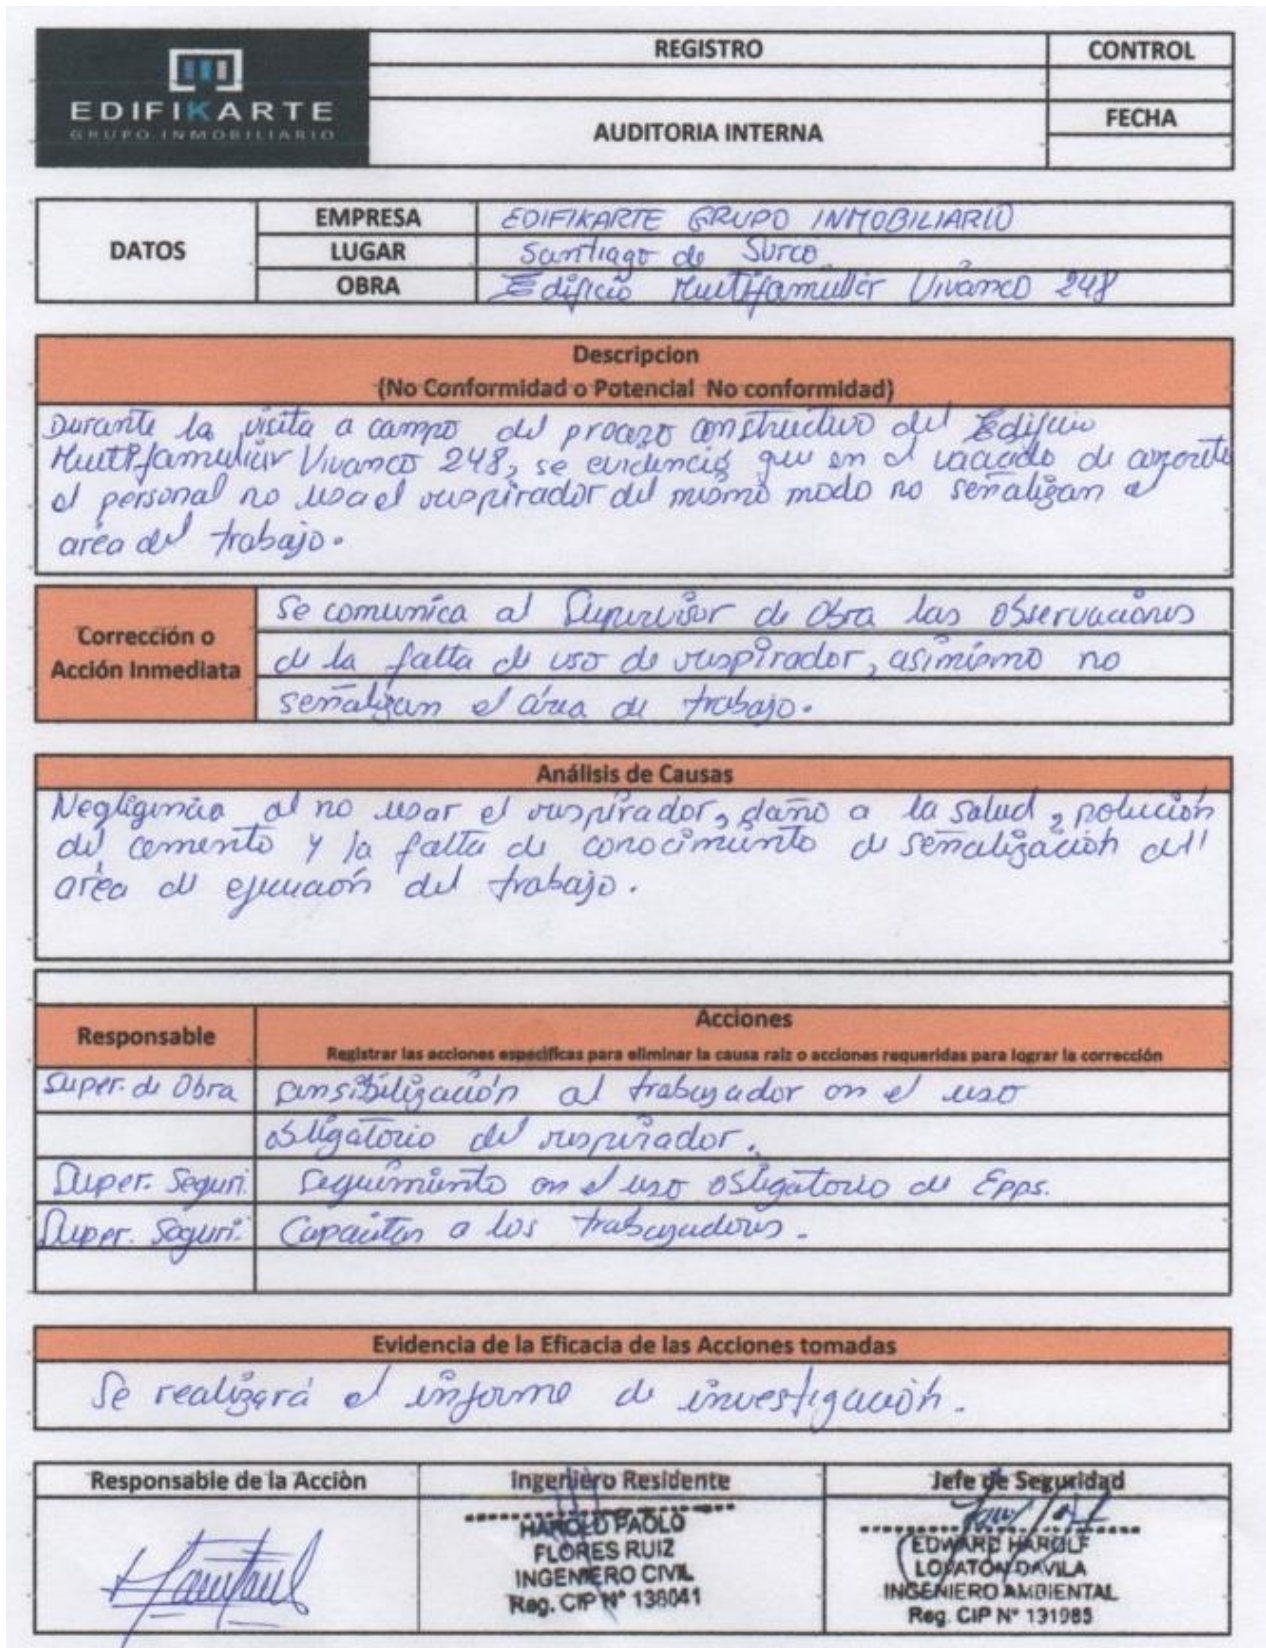 EDIFIKARTE
GRUPO INMOBILIARIO
REGISTRO
CONTROL
AUDITORIA INTERNA
FECHA
DATOS
EMPRESA
EDIFIKARTE GRUPO INMOBILIARIO
LUGAR
Santiago de Surco
OBRA
Edificio Multifamiliar Vivanco 248
Descripcion
(No Conformidad o Potencial No conformidad)
Durante la visita a campo del proceso constructivo del Edificio
Multifamiliar Vivanco 248, se evidenció que en el vaciado de concreto
el personal no usa el respirador del mismo modo no señalizan el
area del trabajo.
Corrección o
Acción Inmediata
Se comunica al Supervisor de Obra las observaciones
de la falta de uso de respirador, asimismo no
señalizan el área de trabajo.
Análisis de Causas
Negligencia al no usar el respirador, daño a la salud, polución
del cemento y la falta de conocimiento de señalización del
area de ejecución del trabajo.
Responsable
Acciones
Registrar las acciones especificas para eliminar la causa raiz o acciones requeridas para lograr la corrección
Super. de Obra
sensibilización al trabajador en el uso
obligatorio del respirador.
Super. Seguri.
Seguimiento en el uso obligatorio de Epps.
Super. Seguri.
Capacitar a los trabajadores.
Evidencia de la Eficacia de las Acciones tomadas
Se realizará el informe de investigación.
Responsable de la Acciòn
Ingeniero Residente
Jefe de Seguridad
HAROLD PAOLO
FLORES RUIZ
INGENIERO CIVIL
Reg. CIP N° 138041
EDWARD HAROLF
LOVATON DAVILA
INGENIERO AMBIENTAL
Reg. CIP N° 131985